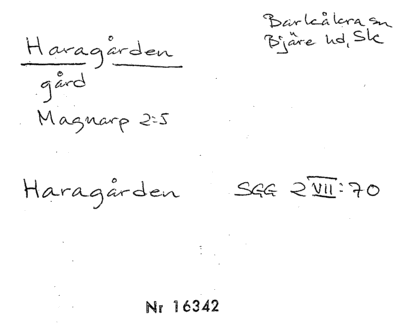 Haragården
Barkåkra sn
Bjäre hd, Sk
gård
Magnarp 2:5
Haragården SGG 2 VII:70
Nr 16342